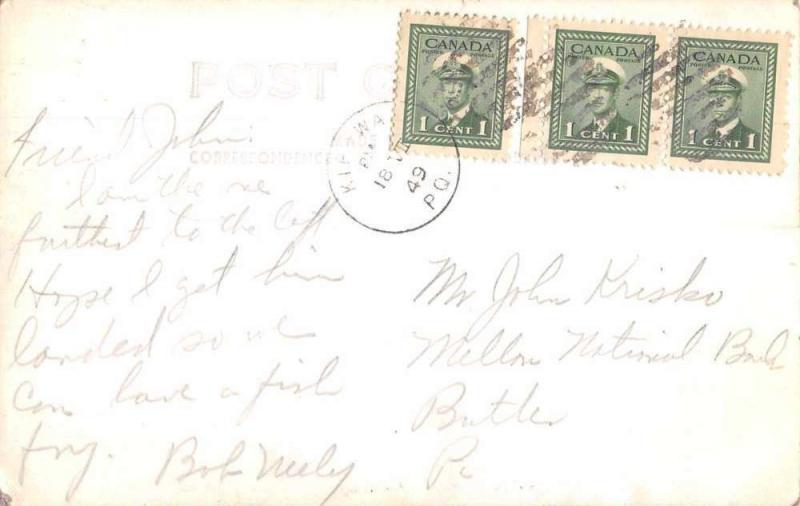 POST C
CORRESPONDENCE
CANADA
POSTES POSTAGE
1 CENT 1
CANADA
POSTES POSTAGE
1 CENT 1
CANADA
POSTES POSTAGE
1 CENT 1
KIPAWA
PM
18 VI
49
P.Q.
Friend John:
I am the one
furthest to the left.
Hope I get him
landed so we
can have a fish
fry. Bob Neely
Mr John Krisko
Mellon National Bank
Butler
Pa